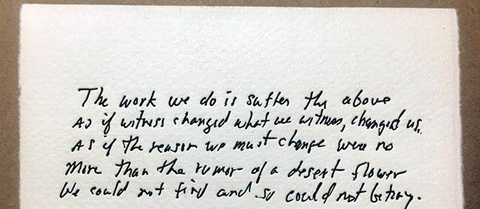 The work we do is suffer the above
As if witness changed what we witness, changed us.
As if the reason we must change were no
More than the rumor of a desert flower
We could not find and so could not betray.